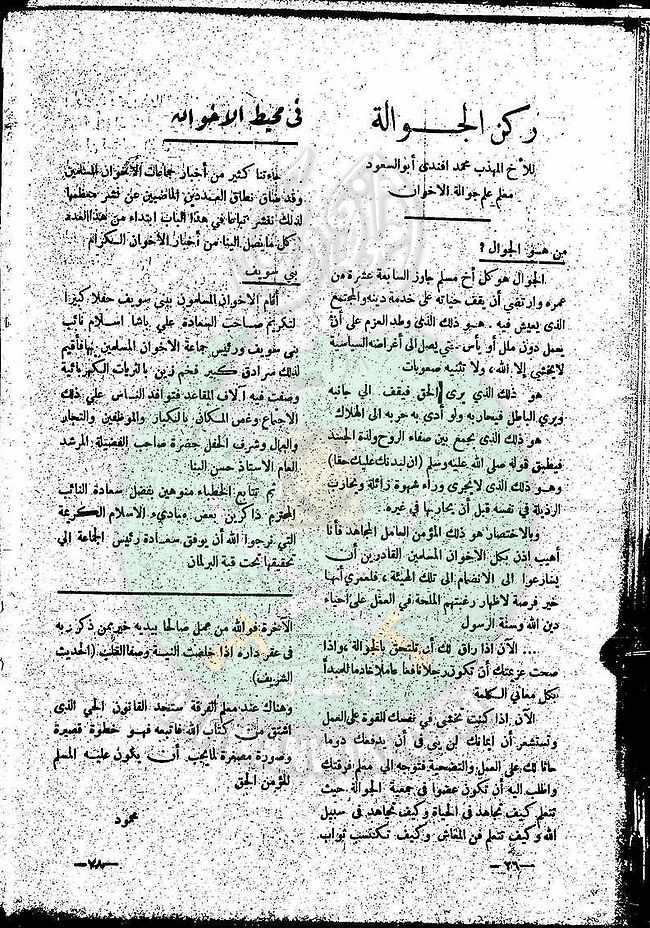 ركن الجـــوالة
للأخ المهذب محمد افندى أبو السعود
معلم علم جوالة الاخوان
من هـو الجوال ؟
الجوال هو كل أخ مسلم جاوز السابعة عشرة من
عمره وارتضى أن يقف حياته على خدمة دينه والمجتمع
الذى يعيش فيه . هـو ذلك الذى وطد العزم على أن
يعمل دون ملل أو يأس حتى يصل الى أغراضه السياسة
لا يخشى إلا الله ، ولا تثنيه صعوبات
هو ذلك الذى يرى الحق فيقف الى جانبه
ويرى الباطل فيحاربه ولو أدى به حربه إلى الهلاك
هو ذلك الذى يجمع بين صفاء الروح ولذة الجسد
فيطبق قوله صلى الله عليه وسلم (ان لبدنك عليك حقا)
وهـو ذلك الذى لا يجرى وراء شهوة زائلة ويحارب
الرذيلة فى نفسه قبل أن يحاربها فى غيره
وبالاختصار هو ذلك المؤمن العامل المجاهد فأنا
أهيب اذن بكل الاخوان المسلمين القادرين أن
يسارعوا الى الانضمام الى تلك الهيئة ، فلعمرى أنها
خير فرصة لاظهار رغبتهم الملحة فى العمل على احياء
دين الله وسنة الرسول
.... الآن اذا راق لك أن تلتحق بالجوالة ، واذا
صحت عزيمتك أن تكون رجلا نافعا عاملا خادما للمبدأ
بكل معانى الكلمة
الآن اذا كنت تخشى فى نفسك القوة على العمل
وتستشعر أن ايمانك لن ينى فى أن يدفعك دوما
حاثا لك على العمل والتضحية فتوجه الى معلم فرقتك
واطلب اليه أن تكون عضوا فى جمعية الجوالة حيث
تتعلم كيف تجاهد فى الحياة وكيف تجاهد فى سبيل
الله وكيف تتعلم فن المعاش وكيف تكتسب ثواب
—٢٦—
فى محيط الاخوان
جاءتنا كثير من أخبار جماعات الاخوان المسلمين
وقد ضاق نطاق العددين الماضيين عن نشر معظمها
لذلك نشر تباعا فى هذا الباب ابتداء من هذا العدد
كل ما يصل الينا من أخبار الاخوان الكرام
بنى سويف
أقام الاخوان المسلمون ببنى سويف حفلا كبيرا
لتكريم صاحب السعادة على باشا اسلام نائب
بنى سويف ورئيس جماعة الاخوان المسلمين بها فأقيم
لذلك سرادق كبير فخم زين بالثريات الكهربائية
وصفت فيه آلاف المقاعد فتوافد الناس على ذلك
الاجتماع وغص المكان بالكبار والموظفين والتجار
والعمال وشرف الحفل حضرة صاحب الفضيلة المرشد
العام الاستاذ حسن البنا
ثم تتابع الخطباء منوهين بفضل سعادة النائب
المحترم ذاكرين بعض مبادىء الاسلام الكريمة
التى نرجوا الله أن يوفق سعادة رئيس الجماعة الى
تحقيقها تحت قبة البرلمان
الآخرة فوالله من عمل صالحا بيديه خير ممن ذكر ربه
فى عقر داره اذا خلصت النية وصفا القلب (الحديث
الشريف)
وهناك عند معلم الفرقة ستجد القانون الحى الذى
اشتق من كتاب الله فاتبعه فهـو خطوة قصيرة
وصورة مصغرة لما يجب أن يكون عليـه المسلم
المؤمن الحق
محمود
—٢٨—